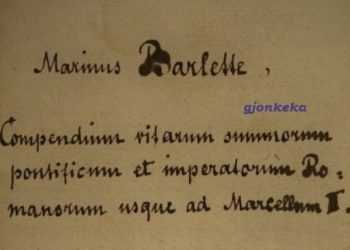 Marinus Barlette,
gjonkeka
Compendium vitarum summorum
pontificum et imperatorum Ro=
manorum usque ad Marcellum II.